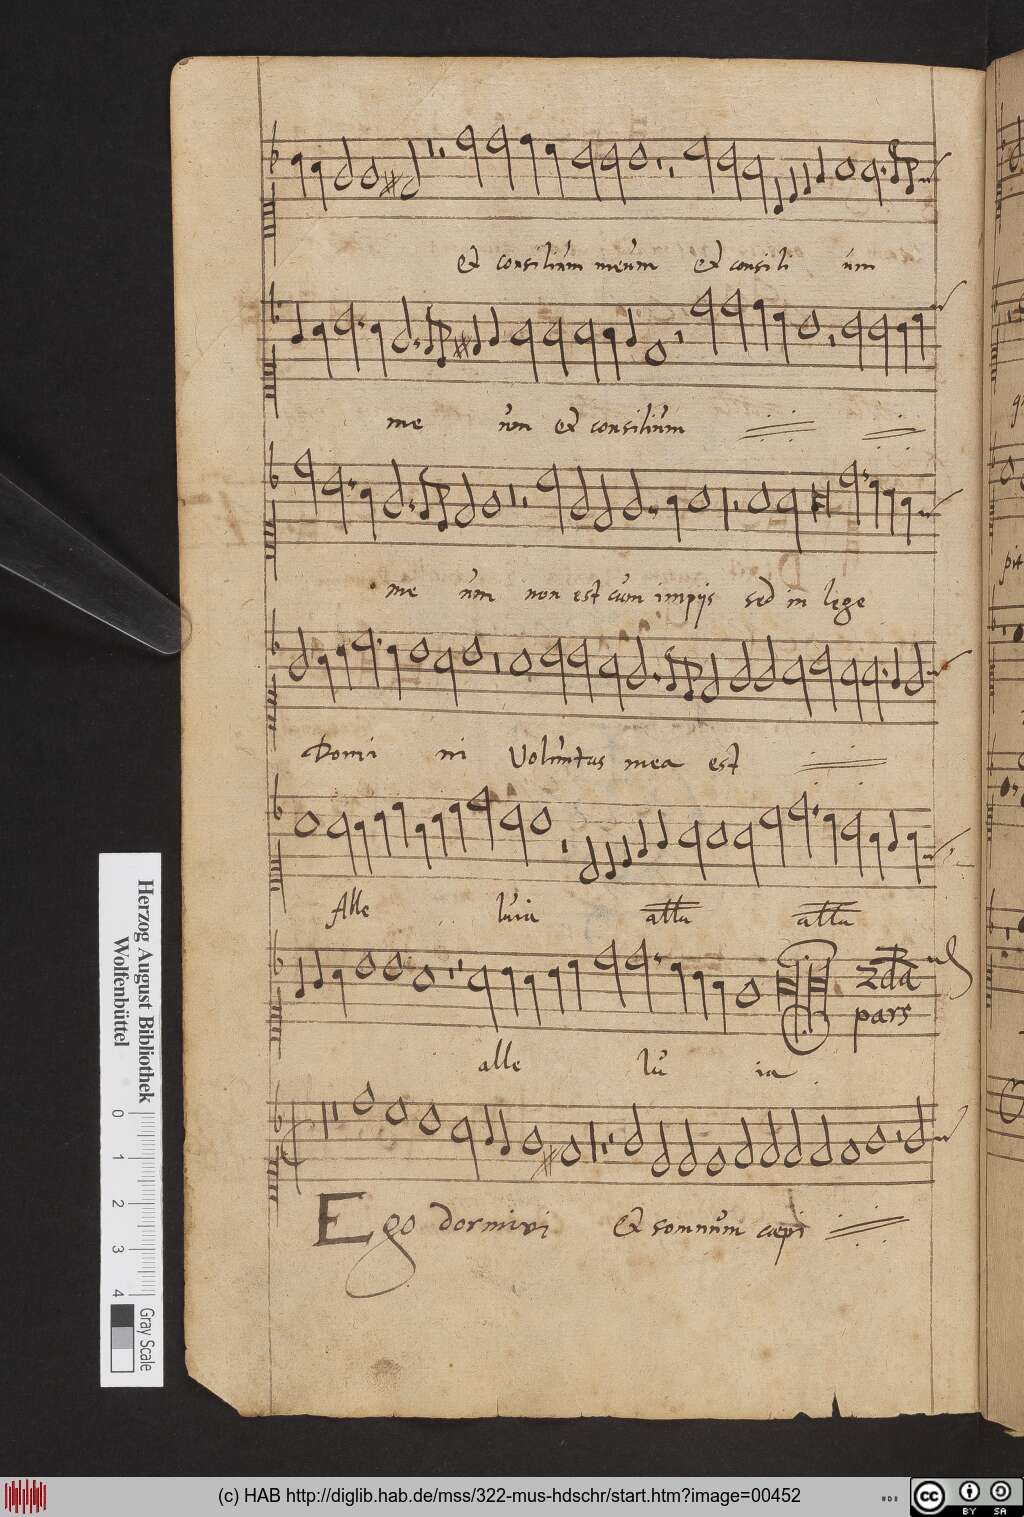 et consilium meum et consili um
me um et consilium
me um non est cum impijs sed in lege
Domi ni Voluntas mea est
Alle luia alla alla
2da
pars
alle lu ia
Ego dormivi et somnum cepi
Herzog August Bibliothek
Wolfenbüttel
0 1 2 3 4
Gray Scale
(c) HAB http://diglib.hab.de/mss/322-mus-hdschr/start.htm?image=00452
cc BY SA